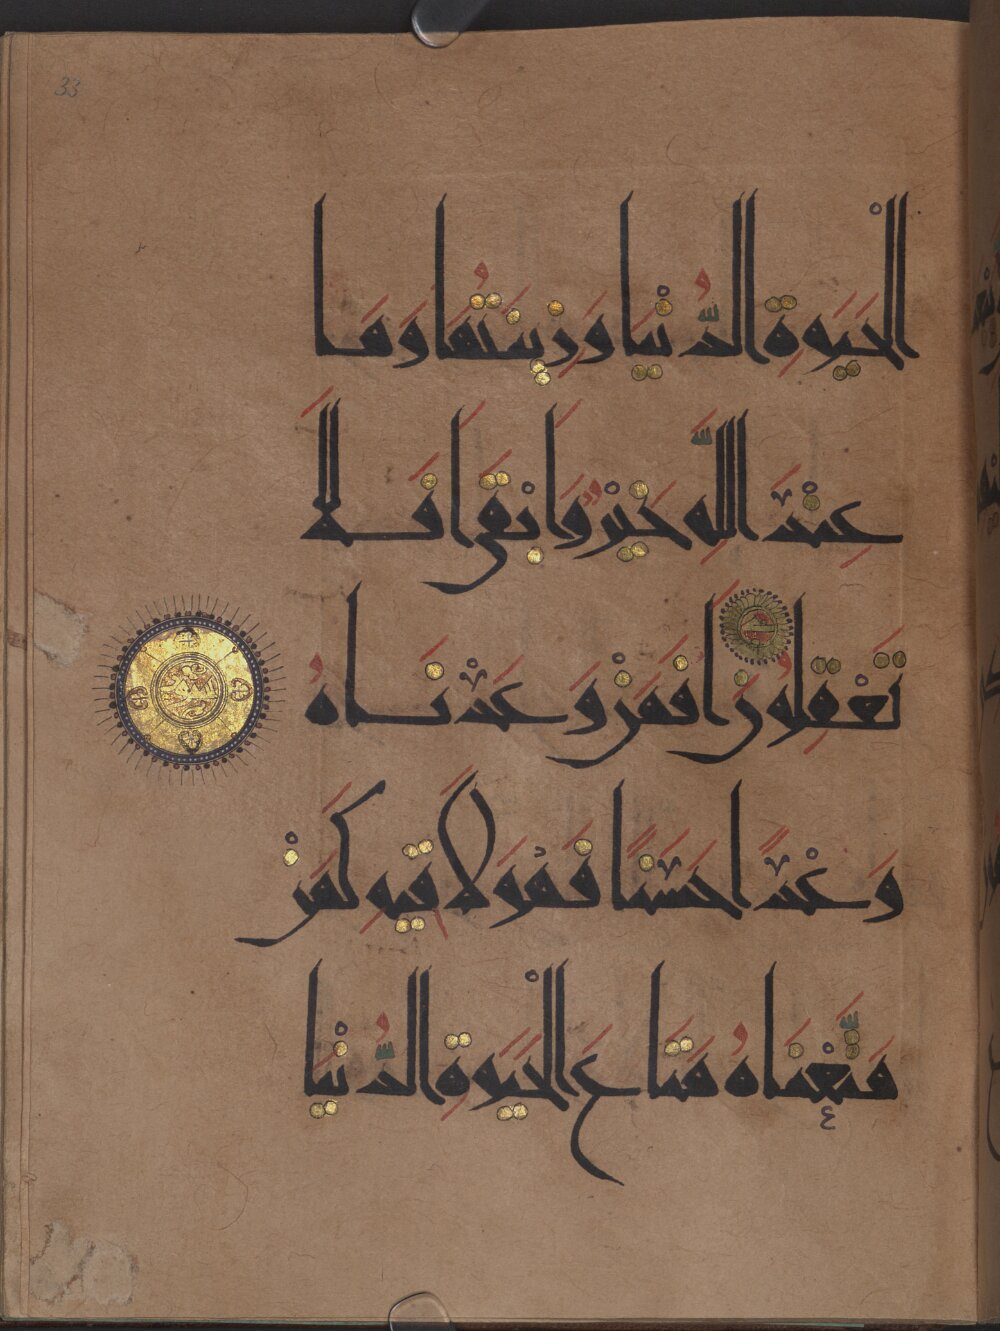 33
الْحَيَوةِ الدُّنْيَا وَزِينَتُهَا وَمَا
عِنْدَ اللَّهِ خَيْرٌ وَأَبْقَى أَفَلَا
تَعْقِلُونَ أَفَمَنْ وَعَدْنَاهُ
وَعْدًا حَسَنًا فَهُوَ لَاقِيهِ كَمَنْ
مَتَّعْنَاهُ مَتَاعَ الْحَيَوةِ الدُّنْيَا